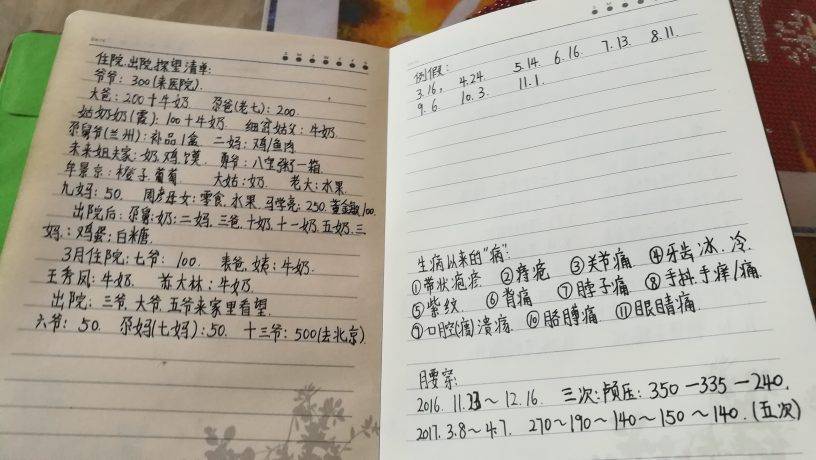 住院、出院探望清单:
爷爷: 300(来医院).
大爸: 200+牛奶 尕爸(老七): 200.
姑奶奶(霞): 100+牛奶 细宫姑父: 牛奶.
尕舅爷(兰州): 补品1盒 二妈: 鸡/鱼肉
未来姐夫家: 奶.鸡.馍. 勇爷: 八宝粥一箱.
牟景京: 橙子.葡萄 大姑: 奶. 老大: 水果.
九妈: 50. 周彦母女: 零食.水果. 马学亮: 250. 董金敏100.
出院后: 尕舅: 奶; 二妈.三爸.十奶.十一奶.五奶.三
妈.: 鸡蛋; 白米糖.
3月住院: 七爷: 100. 表爸.姨: 牛奶.
王秀凤: 牛奶. 苏大林: 牛奶.
出院: 三爷.大爷.五爷来家里看望.
六爷: 50. 尕妈(七妈): 50. 十三爷: 500(去北京).
例假:
3.16, 4.24 5.14. 6.16. 7.13. 8.11.
9.6. 10.3. 11.1.
生病以来的"病":
①带状疱疹 ②痔疮 ③关节痛 ④牙齿冰.冷.
⑤紫纹. ⑥背痛 ⑦脖子痛 ⑧手抖.手痒/痛.
⑨口腔(周)溃疡. ⑩胳膊痛 ⑪眼睛痛.
腰穿:
2016. 11.23~12.16. 三次: 颅压: 350-335-240.
2017. 3.8~4.7. 270~190~140~150~140. (五次)